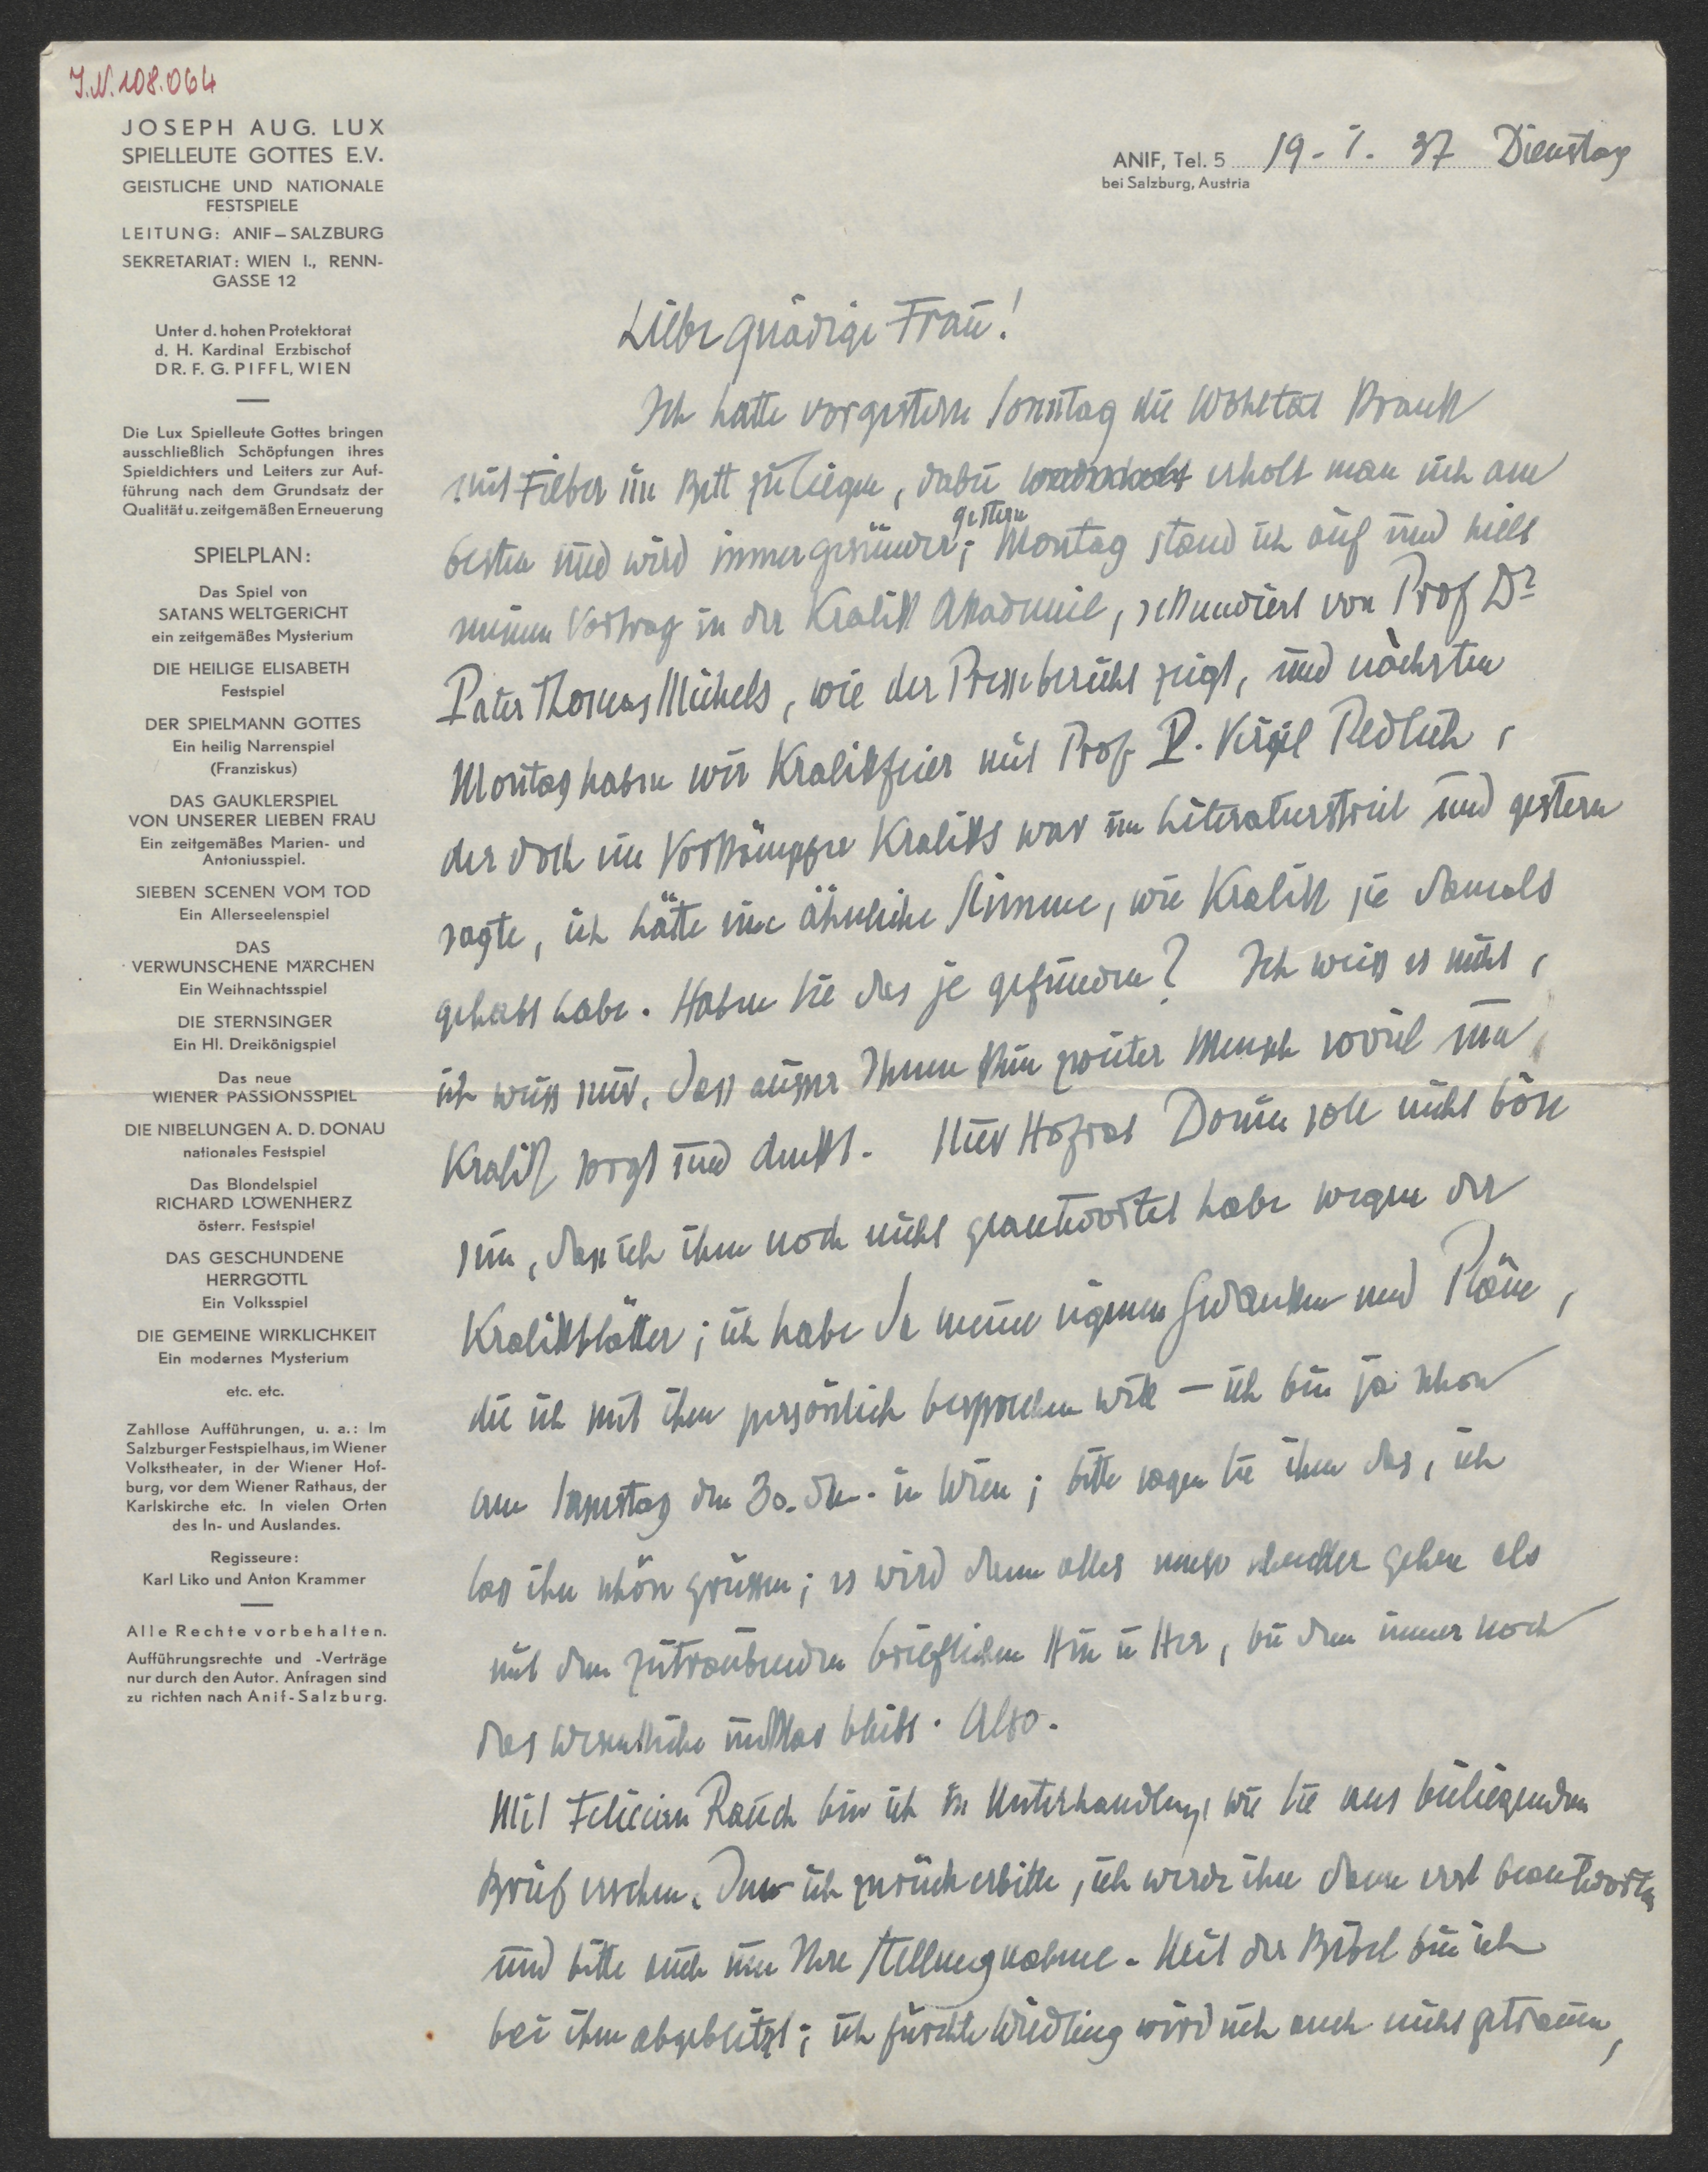 J.N. 108.064
JOSEPH AUG. LUX
SPIELLEUTE GOTTES E.V.
GEISTLICHE UND NATIONALE
FESTSPIELE
LEITUNG: ANIF – SALZBURG
SEKRETARIAT: WIEN I., RENN-
GASSE 12
Unter d. hohen Protektorat
d. H. Kardinal Erzbischof
DR. F. G. PIFFL, WIEN
Die Lux Spielleute Gottes bringen
ausschließlich Schöpfungen ihres
Spieldichters und Leiters zur Auf-
führung nach dem Grundsatz der
Qualität u. zeitgemäßen Erneuerung
SPIELPLAN:
Das Spiel von
SATANS WELTGERICHT
ein zeitgemäßes Mysterium
DIE HEILIGE ELISABETH
Festspiel
DER SPIELMANN GOTTES
Ein heilig Narrenspiel
(Franziskus)
DAS GAUKLERSPIEL
VON UNSERER LIEBEN FRAU
Ein zeitgemäßes Marien- und
Antoniusspiel.
SIEBEN SCENEN VOM TOD
Ein Allerseelenspiel
DAS
VERWUNSCHENE MÄRCHEN
Ein Weihnachtsspiel
DIE STERNSINGER
Ein Hl. Dreikönigspiel
Das neue
WIENER PASSIONSSPIEL
DIE NIBELUNGEN A. D. DONAU
nationales Festspiel
Das Blondelspiel
RICHARD LÖWENHERZ
österr. Festspiel
DAS GESCHUNDENE
HERRGÖTTL
Ein Volksspiel
DIE GEMEINE WIRKLICHKEIT
Ein modernes Mysterium
etc. etc.
Zahllose Aufführungen, u. a.: Im
Salzburger Festspielhaus, im Wiener
Volkstheater, in der Wiener Hof-
burg, vor dem Wiener Rathaus, der
Karlskirche etc. In vielen Orten
des In- und Auslandes.
Regisseure:
Karl Liko und Anton Krammer
Alle Rechte vorbehalten.
Aufführungsrechte und -Verträge
nur durch den Autor. Anfragen sind
zu richten nach Anif-Salzburg.
ANIF, Tel. 5 19 - 1. 37 Dienstag
bei Salzburg, Austria
Liebe gnädige Frau!
Ich hatte vorgestern Sonntag die Wohltat krank
mit Fieber im Bett zu liegen, dabei erholt man sich am
besten und wird immer gesünder; gestern Montag stand ich auf und hielt
meinen Vortrag in der Kralik Akademie, sekundiert von Prof Dr
Pater Thomas Michels, wie der Pressebericht zeigt, und nächsten
Montag haben wir Kralikfeier mit Prof P. Virgil Redlich,
der doch ein Vorkämpfer Kraliks war im Literaturstreit und gestern
sagte, ich hätte eine ähnliche Stimme, wie Kralik sie damals
gehabt habe. Haben Sie das je gefunden? Ich weiss es nicht,
ich weiss nur, dass ausser Ihnen kein zweiter Mensch soviel um
Kralik sorgt und denkt. Herr Hofrat soll nicht böse
sein, dass ich ihm noch nicht geantwortet habe wegen der
Kralikblätter; ich habe da meine eigenen Gedanken und Pläne,
die ich mit ihm persönlich besprechen will — ich bin ja schon
am Samstag den 30. ds. in Wien; bitte sagen Sie ihm das, ich
lass ihn schön grüssen; es wird dann alles umso schneller gehen als
mit dem zeitraubenden brieflichen Hin u Her, bei dem immer noch
das Wesentliche unklar bleibt. Also.
Mit Felician Rauch bin ich in Unterhandlung, wie Sie aus beiliegendem
Brief ersehen, den ich zurück erbitte, ich werde ihn dann erst beantworten
und bitte auch um Ihre Stellungnahme. Mit der Bibel bin ich
bei ihm abgeblitzt; ich fürchte Wiedling wird sich auch nicht getrauen,